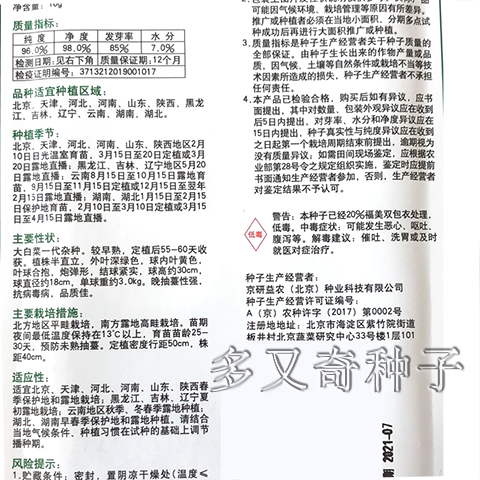 净含量: 10g
质量指标:
纯度 净度 发芽率 水分
96.0% 98.0% 85% 7.0%
检测日期 见右下角 质量保证期:12个月
检疫证明编号: 3713212019001017
品种适宜种植区域:
北京、天津、河北、河南、山东、陕西、黑龙
江、吉林、辽宁、云南、湖南、湖北。
种植季节:
北京、天津、河北、河南、山东、陕西地区2月
10日日光温室育苗、3月15日至20日定植或3月
20日露地直播; 黑龙江、吉林、辽宁地区5月20
日露地直播; 云南8月15日至10月15日露地育
苗、9月15日至11月15日定植或12月15日至翌年
2月15日露地直播。湖南、湖北1月15日至2月15
日保护地育苗、2月10日至3月10日定植或3月15
日至4月15日露地直播。
主要性状:
大白菜一代杂种。较早熟, 定植后55-60天收
获。植株半直立, 外叶深绿色, 球内叶黄色,
叶球合抱, 炮弹形, 结球紧实, 球高约30cm,
球直径约18cm, 单球重约3.0kg。晚抽薹性强,
抗病毒病, 品质佳。
主要栽培措施:
北方地区平畦栽培, 南方露地高畦栽培。苗期
夜间最低温度保持在13℃以上, 育苗苗龄25-
30天, 预防未熟抽薹。定植密度行距50cm, 株
距40cm。
适应性:
适宜北京、天津、河北、河南、山东、陕西春
季保护地和露地栽培; 黑龙江、吉林、辽宁夏
初露地栽培; 云南地区秋季、冬春季露地种植;
湖北、湖南早春季保护地和露地种植。请结合
当地气候条件、种植习惯在试种的基础上调节
播种期。
风险提示:
1.贮藏条件: 密封, 置阴凉干燥处(温度≤
可能因气候环境、栽培管理等原因有所差异。
推广或种植者必须在当地小面积、分期多点试
种成功后再进行大面积推广或种植。
3.质量指标是种子生产经营者关于种子质量的
全部保证。由种子生长出来的作物产量或品
质、因气候、土壤等自然条件或栽培不当等技
术因素所造成的损失, 种子生产经营者不承担
任何责任。
4.本产品已检验合格, 购买后如有异议, 应书
面提出, 其中对数量、包装外观异议应在收到
后5日内提出, 对芽率、水分和净度异议应在
15日内提出, 种子真实性与纯度异议应在收到
之日起第一个栽培周期结束前提出, 逾期视为
没有质量异议; 如需田间现场鉴定, 应根据农
业部第28号令之规定组织实施, 鉴定时应提前
书面通知生产经营者参加, 否则, 生产经营者
对鉴定结果不予认可。
低毒
警告: 本种子已经20%福美双包衣处理,
低毒。中毒症状: 可能发生恶心、呕吐、
腹泻等。解毒建议: 催吐、洗胃或及时
就医对症治疗。
种子生产经营者:
京研益农(北京)种业科技有限公司
种子生产经营许可证编号:
A(京)农种许字(2017)第0002号
注册地地址: 北京市海淀区紫竹院街道
板井村北京蔬菜研究中心33号楼1层101
多又奇种子
期 2021-07